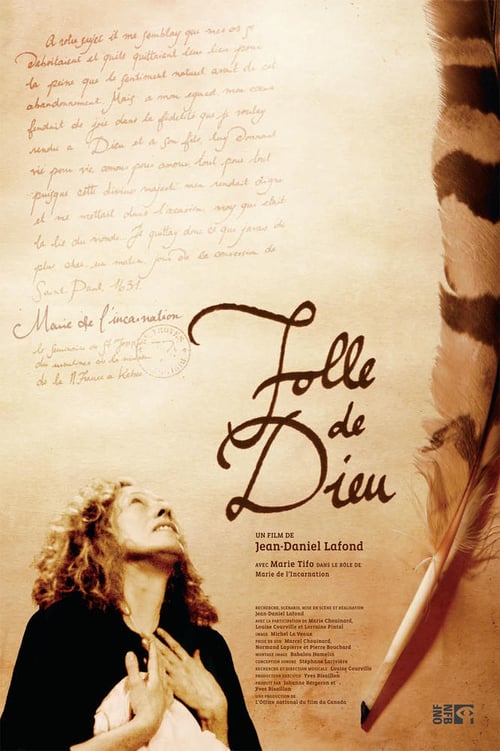 A votre sujet il me semblay que mes os se
deboitaient et quils quittaient leur lieu pour
la peine que le sentiment naturel avait de cet
abandonnement. Mais a mon egard mon cœur
fonduit de joie dans la fidelité que je voulay
rendre a Dieu et a son fils, luy donnant
vie pour vie amour pour amour tout pour tout
puisque cette divine majesté men rendait digne
et me mettait dans l'occasion, moy qui etait
la lie du monde. Je quittay donc ce que javais de
plus cher un matin jour de la conversion de
Saint Paul 1631.
Marie de l'incarnation
le seminaire de St Joseph
des
de la N. France a Kebec
Folle
de
Dieu
UN FILM DE
Jean-Daniel Lafond
AVEC Marie Tifo DANS LE RÔLE DE
Marie de l'Incarnation
RECHERCHE, SCÉNARIO, MISE EN SCÈNE ET RÉALISATION
Jean-Daniel Lafond
AVEC LA PARTICIPATION DE Marie Chouinard,
Louise Courville et Lorraine Pintal
IMAGE Michel La Veaux
PRISE DE SON Marcel Chouinard,
Normand Lapierre et Pierre Bouchard
MONTAGE IMAGE Babalou Hamelin
CONCEPTION SONORE Stéphane Larivière
RECHERCHE ET DIRECTION MUSICALE Louise Courville
PRODUCTEUR EXÉCUTIF Yves Bisaillon
PRODUIT PAR Johanne Bergeron et
Yves Bisaillon
UNE PRODUCTION DE
L'Office national du film du Canada
ONF
NFB